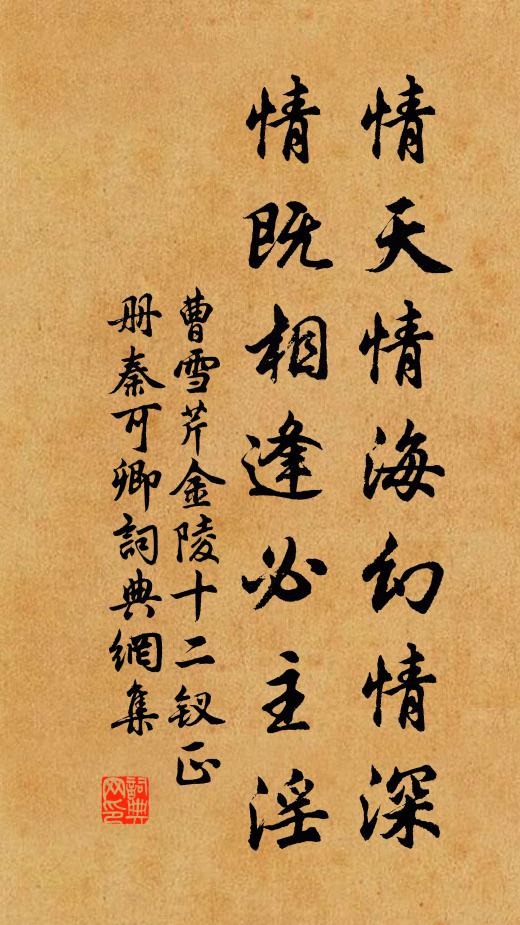 情天情海幻情深
情既相逢必主淫
曹雪芹金陵十二钗正
册秦可卿詞典網集
詞典
网印